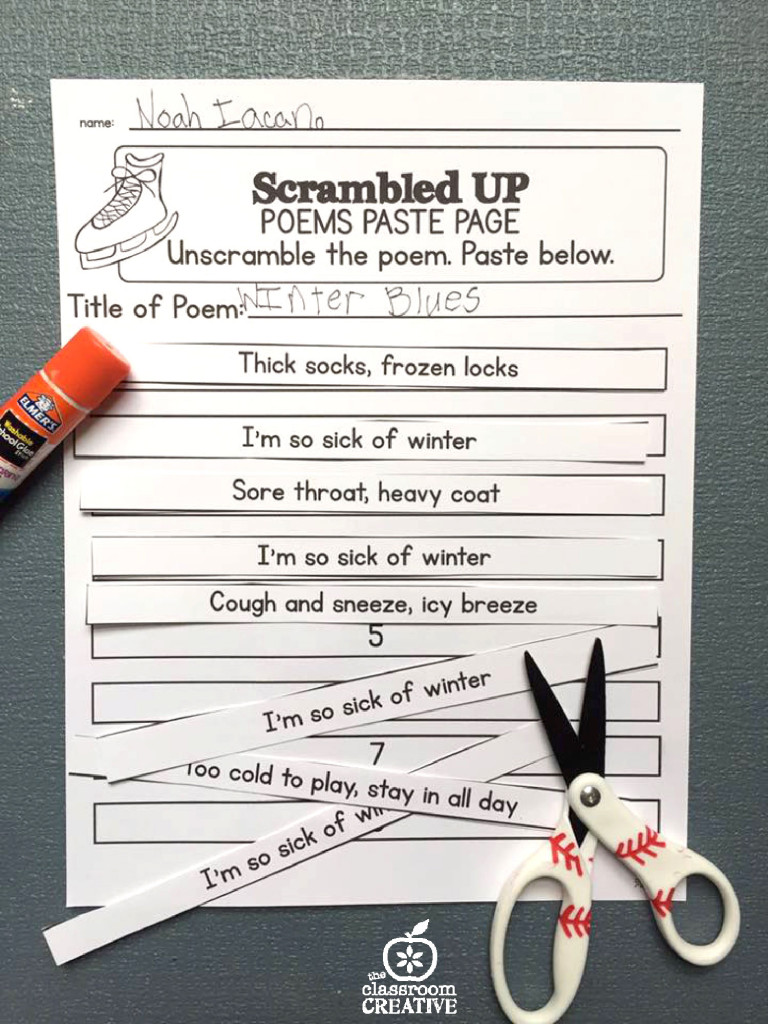 name: Noah Iacano
Scrambled UP
POEMS PASTE PAGE
Unscramble the poem. Paste below.
Title of Poem: WInter Blues
Thick socks, frozen locks
I'm so sick of winter
Sore throat, heavy coat
I'm so sick of winter
Cough and sneeze, icy breeze
5
I'm so sick of winter
7
Too cold to play, stay in all day
I'm so sick of win
ELMER'S
Washable
School Glue
the
classroom
CREATIVE